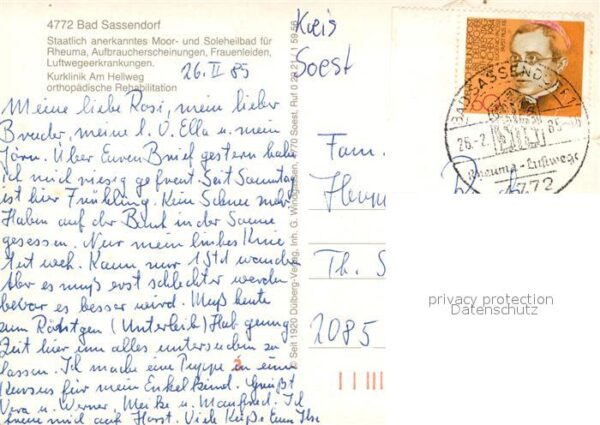 4772 Bad Sassendorf
Staatlich anerkanntes Moor- und Soleheilbad für
Rheuma, Aufbraucherscheinungen, Frauenleiden,
Luftwegeerkrankungen.
Kurklinik Am Hellweg
orthopädische Rehabilitation
26.II 85
Meine liebe Rosi, mein lieber
Bruder, meine l. O. Ella u. mein
Jörn. Über Euren Brief gestern habe
ich mich riesig gefreut. Seit Sonntag
ist hier Frühling. Kein Schnee mehr
Haben auf der Bank in der Sonne
gesessen. Nur mein linkes Knie
tut weh. Kann nur 1 Std wandern
Aber es muß erst schlechter werden
bevor es besser wird. Muß heute
zum Röntgen (Unterleib) Hab genug
Zeit hier um alles untersuchen zu
lassen. Ich mache eine Puppe in einem
Kursus für mein Enkelkind. Grüßt
Vera u. Werner, Meike u. Manfred. Ich
freue mich auf Horst. Viele Küße Eure Ilse
© Seit 1920 Dülberg-Verlag, Inh. G. 4770 Soest, Ruf 0 29 21 / 1 59 56
Kreis
Soest
Fam.
Th. S
2085
60
26.-2.
Rheuma-Luftwege
4772
privacy protection
Datenschutz